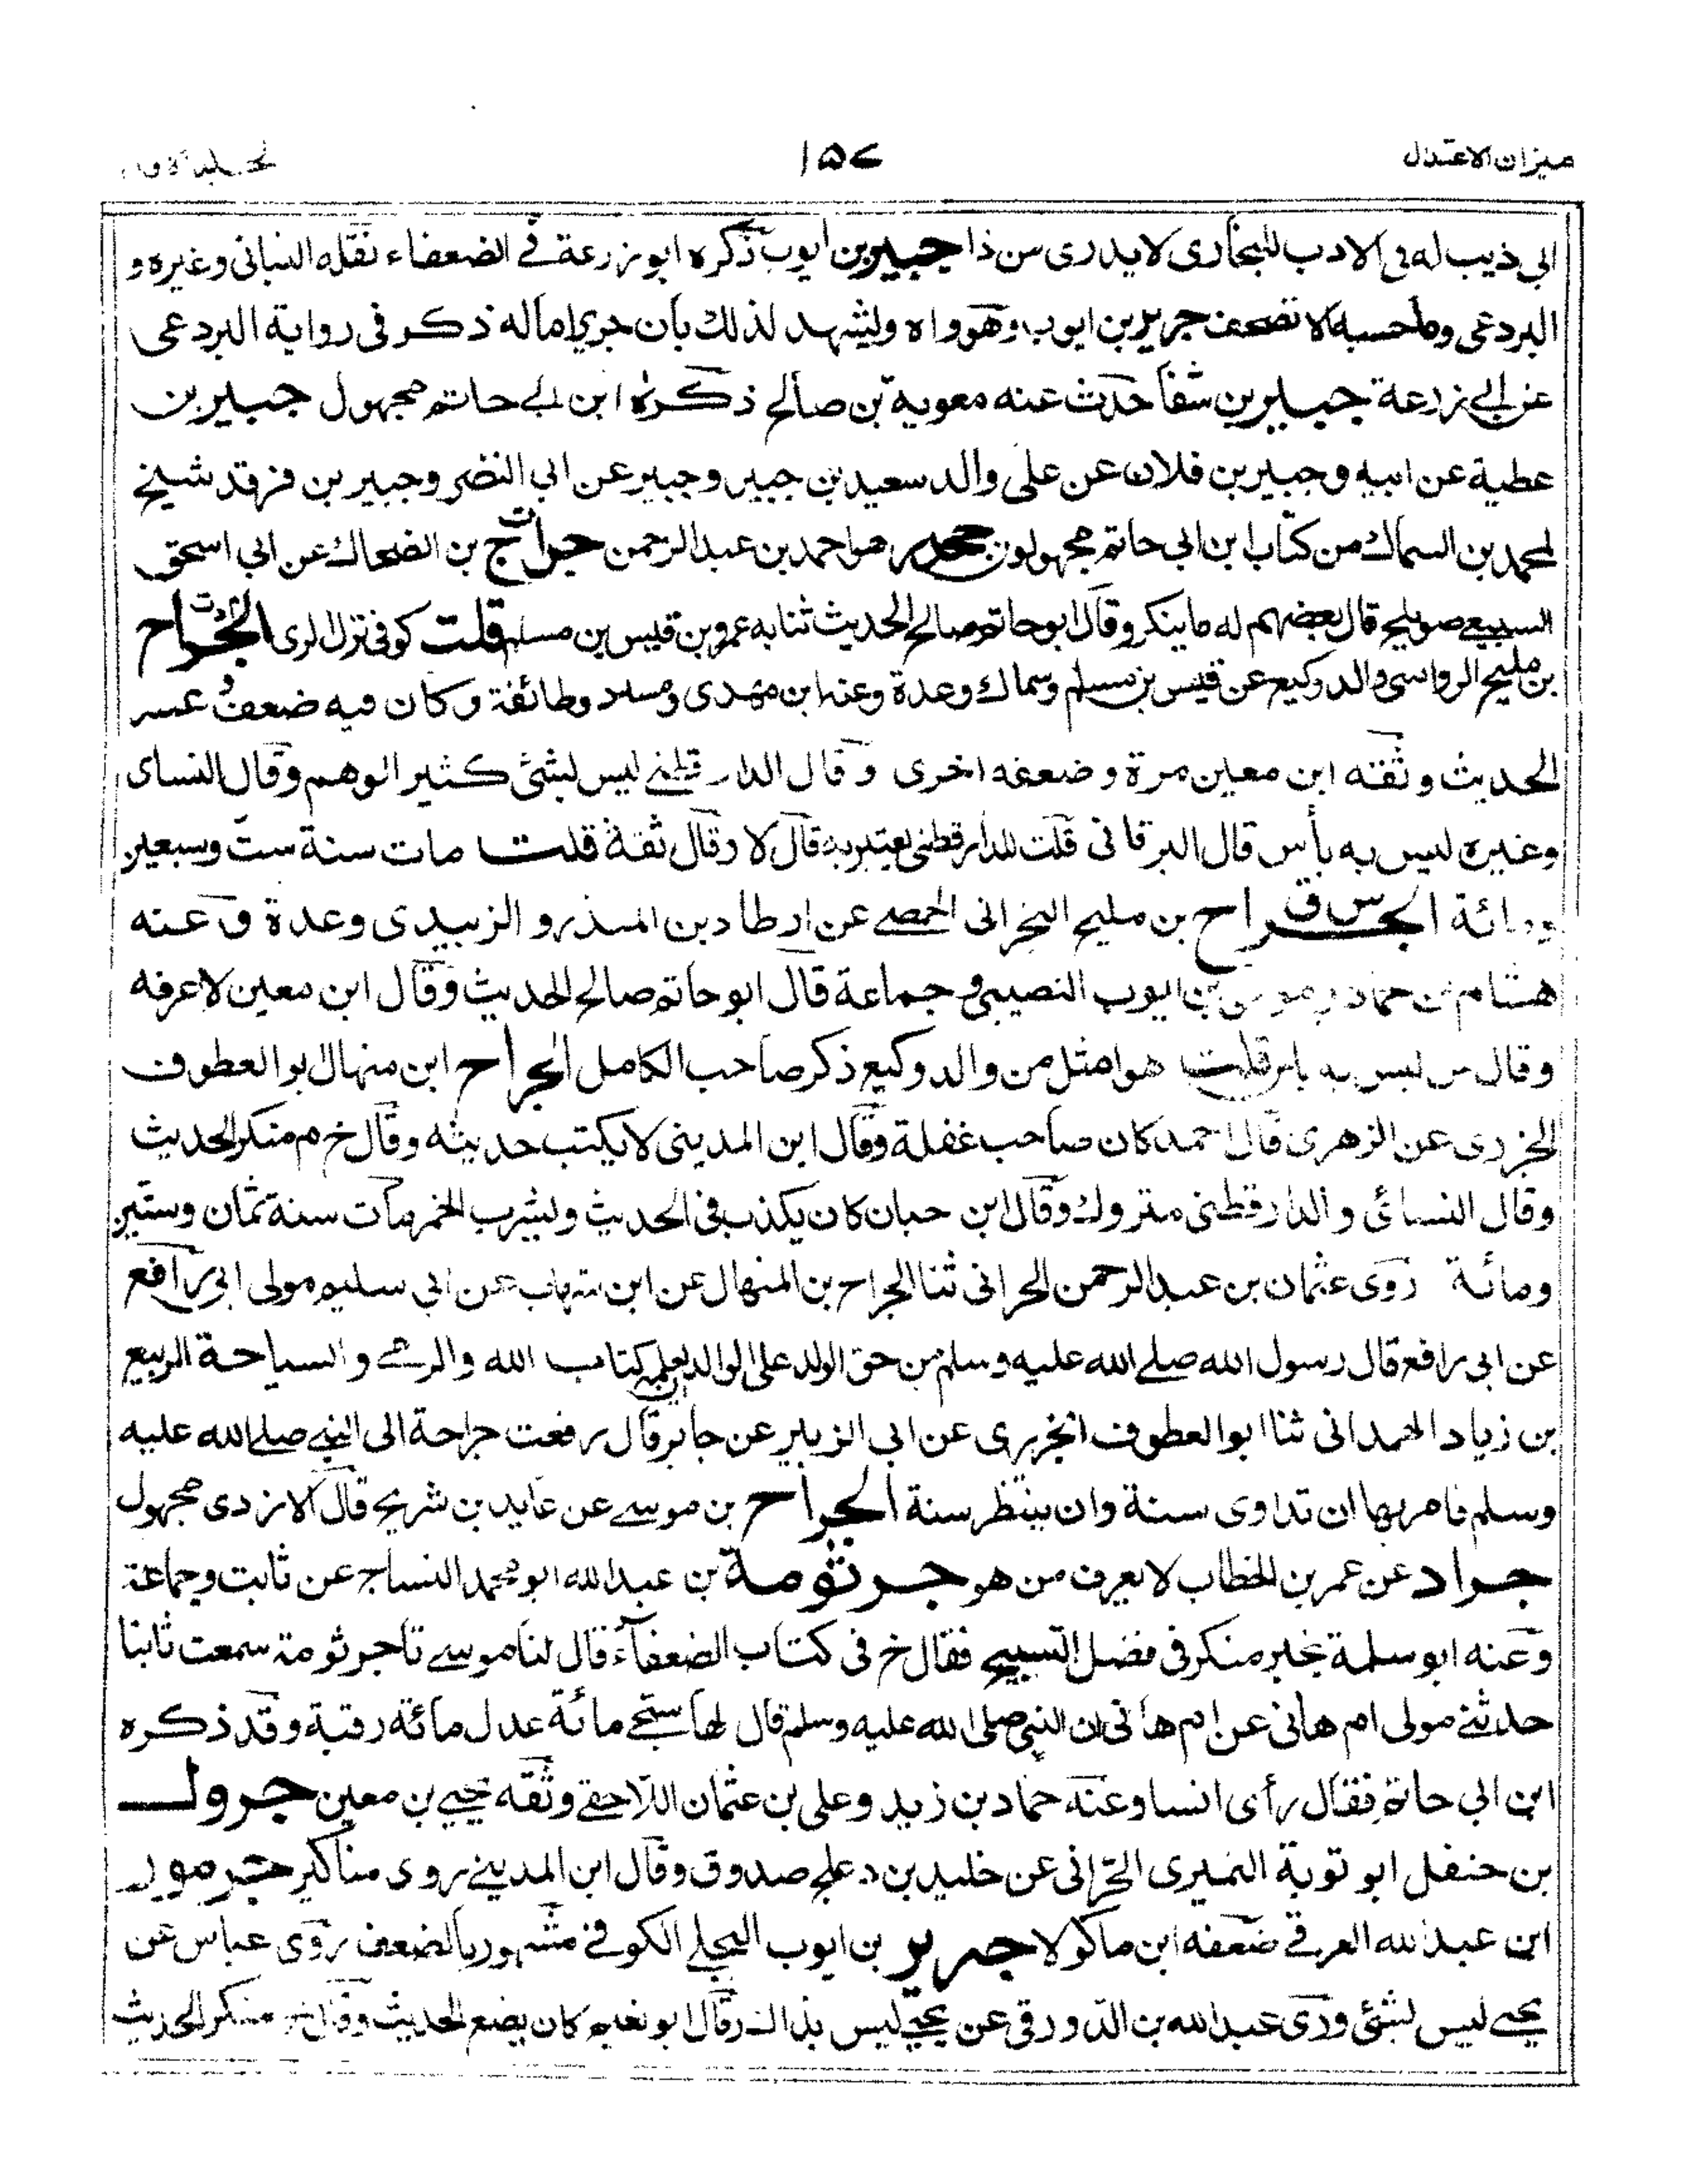 ميزان الاعتدال ١٥٧
ابى ذيب له فى الادب للبخارى لا يدرى من ذا جبير بن ايوب ذكره ابو زرعة فى الضعفاء نقله النباتى وغيره و
البردعى وما احسبه الا تصحف جرير بن ايوب وهو واه وليشهد لذلك بأن جريرا ماله ذكر فى رواية البردعى
عن ابى زرعة جبير بن شفا حدث عنه معوية بن صالح ذكره ابن ابى حاتم مجهول جبير بن
عطية عن ابيه وجبير بن فلان عن على والد سعيد بن جبير وجبير عن ابى النضر وجبير بن فرقد شيخ
لمحمد بن السماك من كتاب ابن ابى حاتم مجهولون جحدر هو احمد بن عبد الرحمن جراح ت بن الضحاك عن ابى اسحق
السبيعى صويلح قال بعضهم له ما ينكر وقال ابو حاتم صالح الحديث ثنا به عمرو بن قيس بن مسلم قلت كوفى نزل الرى الجراح
بن مليح الرواسى والد وكيع عن قيس بن مسلم وسماك وعدة وعنه ابن مهدى ومسدد وطائفة وكان فيه ضعف وعسر
الحديث وثقه ابن معين مرة وضعفه اخرى وقال الدارقطنى ليس بشئ كثير الوهم وقال النساى
وغيره ليس به بأس قال البرقانى قلت للدارقطنى يعتبر به قال لا وقال ثقة قلت مات سنة ست وسبعين
ومائة الجراح س ق بن مليح البحرانى الحمصى عن ارطاة بن المنذر و الزبيدى وعدة وعنه
هشام بن عمار وموسى بن ايوب النصيبى وجماعة قال ابو حاتم صالح الحديث وقال ابن معين لا اعرفه
وقال س ليس به باس قلت هو امثل من والد وكيع ذكر صاحب الكامل الجراح ابن منهال ابو العطوف
الجزرى عن الزهرى قال احمد كان صاحب غفلة وقال ابن المدينى لا يكتب حديثه وقال خ م منكر الحديث
وقال النسائى و الدارقطنى متروك وقال ابن حبان كان يكذب فى الحديث ويشرب الخمر مات سنة ثمان وستين
ومائة روى عثمان بن عبد الرحمن الحرانى ثنا الجراح بن المنهال عن ابن شهاب عن ابى سليم مولى ابى رافع
عن ابى رافع قال رسول الله صلے الله عليه وسلم من حق الولد على الوالد ان يعلمه كتاب الله والرمى والسباحة الربيع
بن زياد الهمدانى ثنا ابو العطوف الجزرى عن ابى الزبير عن جابر قال رفعت جراحة الى النبى صلے الله عليه
وسلم فامر بها ان تداوى سنة وان ينتظر سنة الجراح بن موسے عن عايد بن شريح قال الازدى مجهول
جراد عن عمر بن الخطاب لا يعرف من هو جرثومة بن عبد الله ابو محمد النساج عن ثابت وجماعة
وعنه ابو سلمة بخبر منكر فى فضل التسبيح فقال خ فى كتاب الضعفاء قال لنا موسے تا جرثومة سمعت ثابنا
حدثنے مولى ام هانى عن ام هانى ان النبى صلى الله عليه وسلم قال لها سبحى مائة عدل مائة رقبة وقد ذكره
ابن ابى حاتم فقال رأى انسا وعنه حماد بن زيد وعلى بن عثمان اللاحقے وثقه يحيے بن معين جرول
بن حنفل ابو توبة النميرى الحرانى عن خليد بن دعلج صدوق وقال ابن المدينے روى مناكير جرموز
ابن عبد الله العرقے ضعفه ابن ماكولا جرير بن ايوب البجلے الكوفے مشهور بالضعف روى عباس عن
يحيے ليس بشئ وروى عبد الله بن الدورقى عن يحيے ليس بذاك وقال ابو نعيم كان يضع الحديث وقال خ منكر الحديث